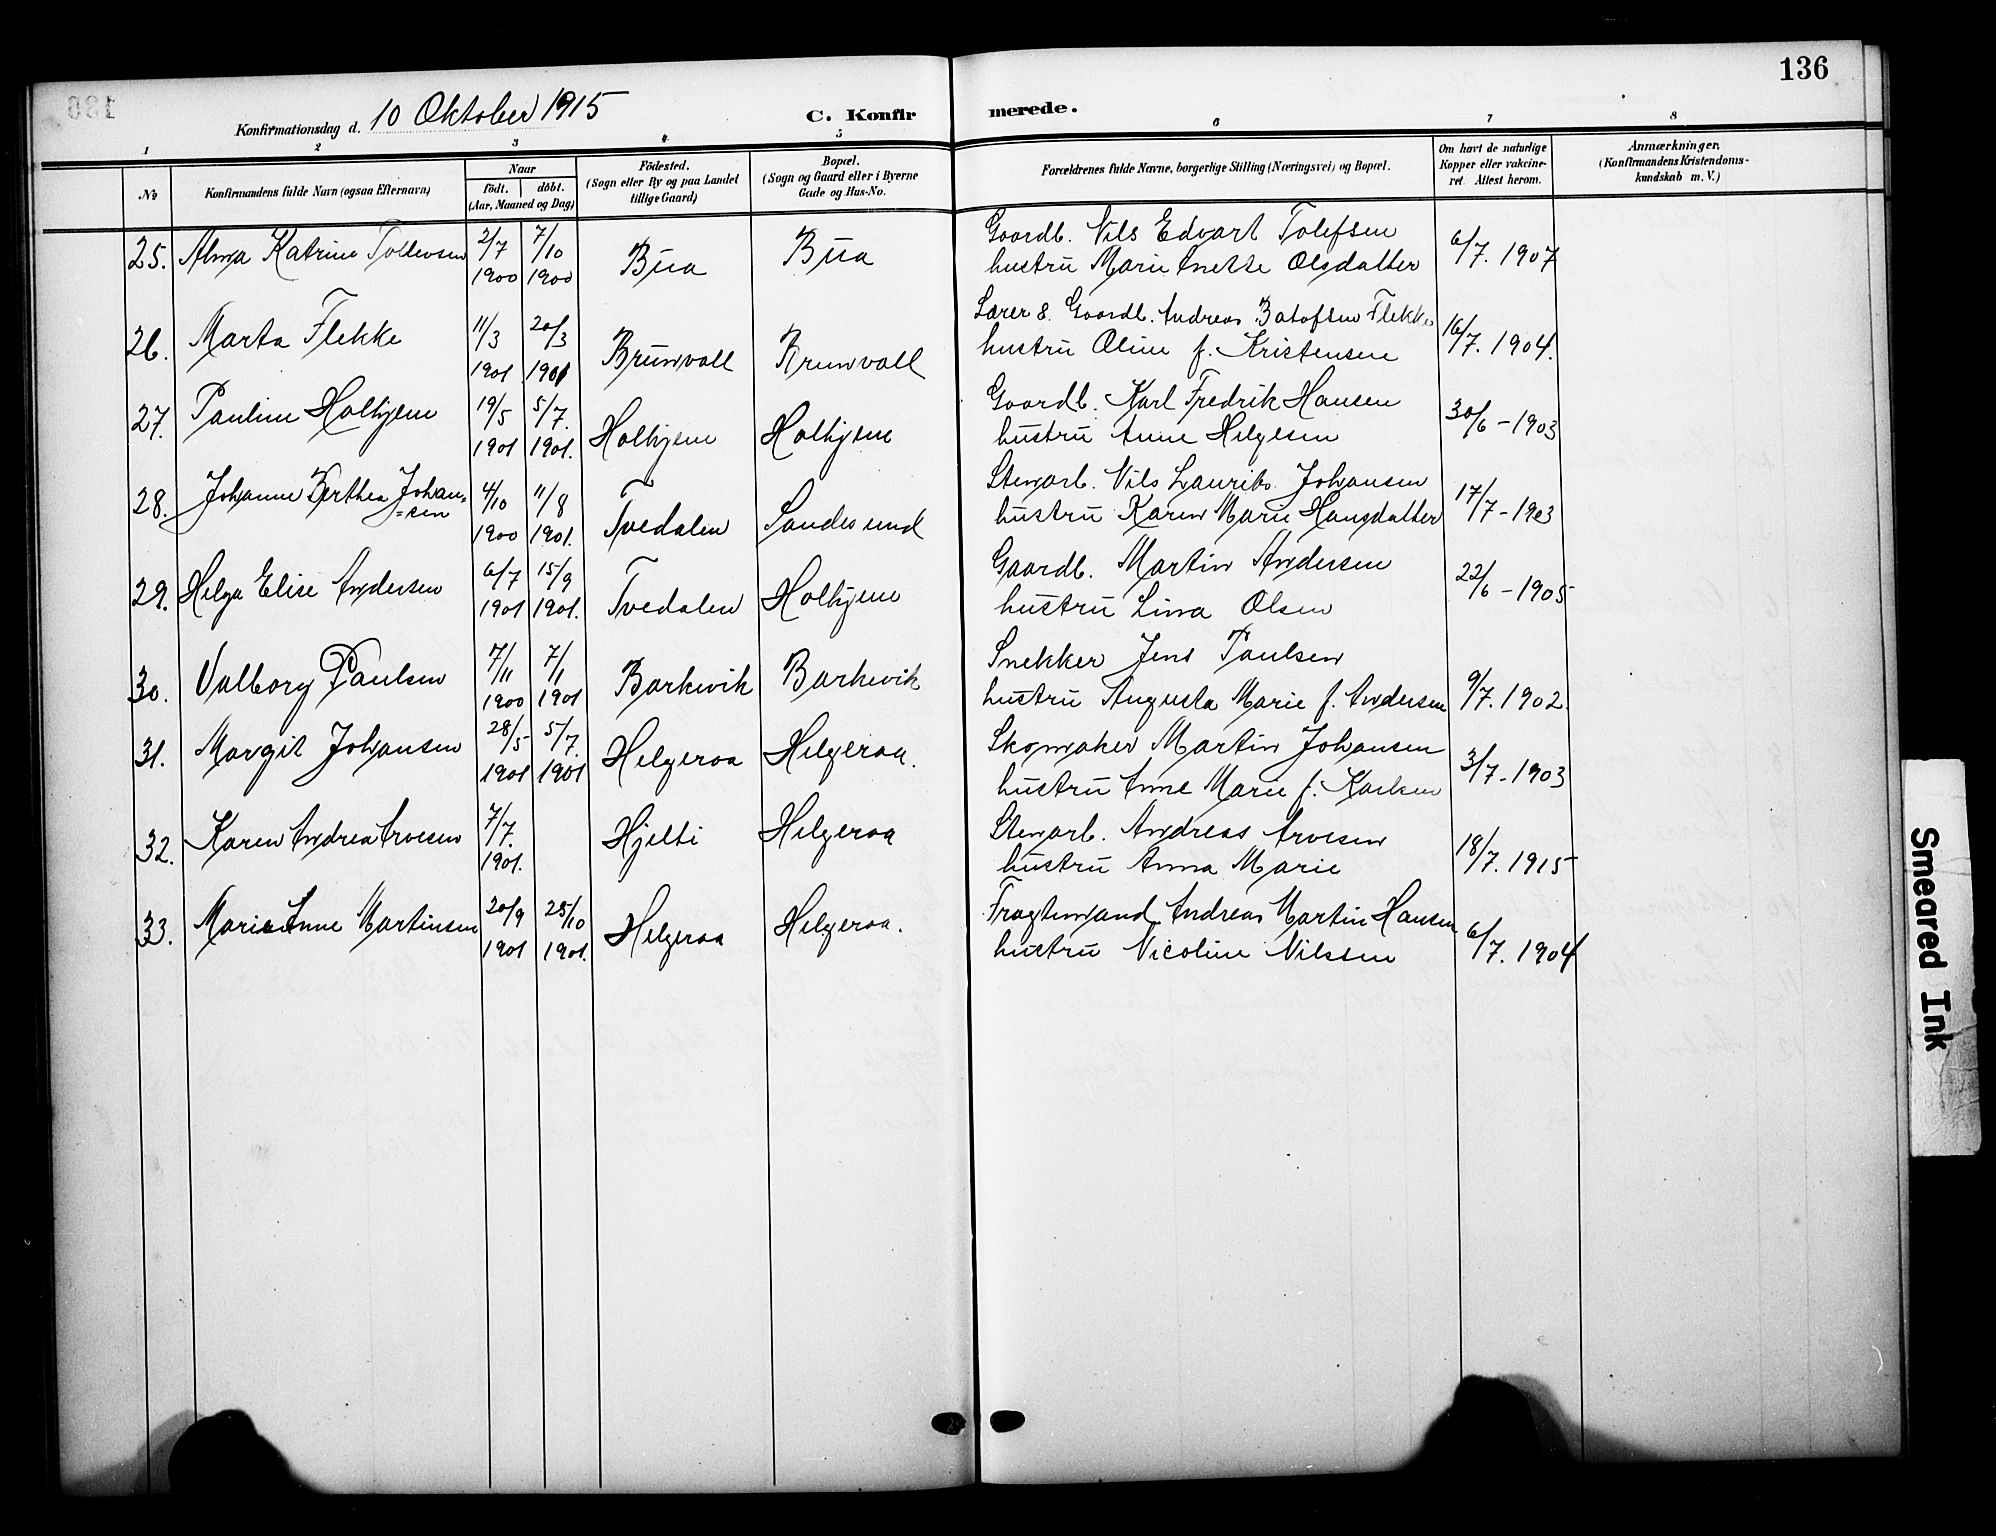 136
Konfirmationsdag d. 10 Oktober 1915
C. Konfirmerede.
1 2 3 4 5 6 7 8
No
Konfirmandens fulde Navn (ogsaa Efternavn)
Naar
födt. döbt.
(Aar, Maaned og Dag)
Födested.
(Sogn eller By og paa Landet
tillige Gaard)
Bopæl.
(Sogn og Gaard eller i Byerne
Gade og Hus-No.
Forældrenes fulde Navne, borgerlige Stilling (Næringsvei) og Bopæl.
Om havt de naturlige
Kopper eller vakcine-
ret. Attest herom.
Anmærkninger.
(Konfirmandens Kristendoms-
kundskab m. V.)
25. Alma Katrine 2/7 1900 7/10 1900 Bua Bua Goardb. Nils Edvart Tolefsen
hustru Marie Anette Olsdatter 6/7. 1907
26. Marta Flekke 11/3 1901 20/3 1901 Brunvall Brunvall Lærer & Goardb. Andreas Flekke
hustru Oline f. Kristensen 16/7. 1904.
27. Pauline Holhjem 19/5 1901 5/7. 1901. Holhjem Holhjem Goardb. Karl Fredrik Hansen
hustru Anne Helgesen 30/6 - 1903
28. Johanne Berthea Johan=
=sen 4/10 1900 11/8 1901. Tvedalen Sandesund Stenarb. Nils Laurits Johansen
hustru Karen Marie Hansdatter 17/7 - 1903
29. Helga Elise Andersen 6/7 1901 15/9 1901. Tvedalen Holhjem Gaardb. Martin Andersen
hustru Lina Olsen 22/6 - 1905
30. Valborg Paulsen 7/11 1900 7/1 1901 Barkevik Barkevik Snekker Jens Paulsen
hustru Augusta Marie f. Andersen 9/7. 1902.
31. Margit Johansen 28/5 1901 5/7. 1901 Helgeroa Helgeroa. Skomaker Martin Johansen
hustru Anne Marie f. Karlsen 3/7 - 1903
32. Karen Andrea Arvesen 7/7. 1901. Hjelti Helgeroa Stenarb. Andreas Arvesen
hustru Anna Marie 18/7. 1915
33. Marie Anne Martinsen 20/9 1901 25/10 1901. Helgeroa Helgeroa. Fragtemand Andreas Martin Hansen
hustru Nicoline Nilssen 6/7. 1904
Smeared Ink